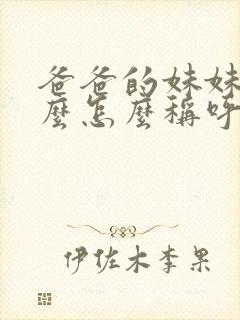 爸爸的妹妹
麼怎麼稱呼
伊佐木李果